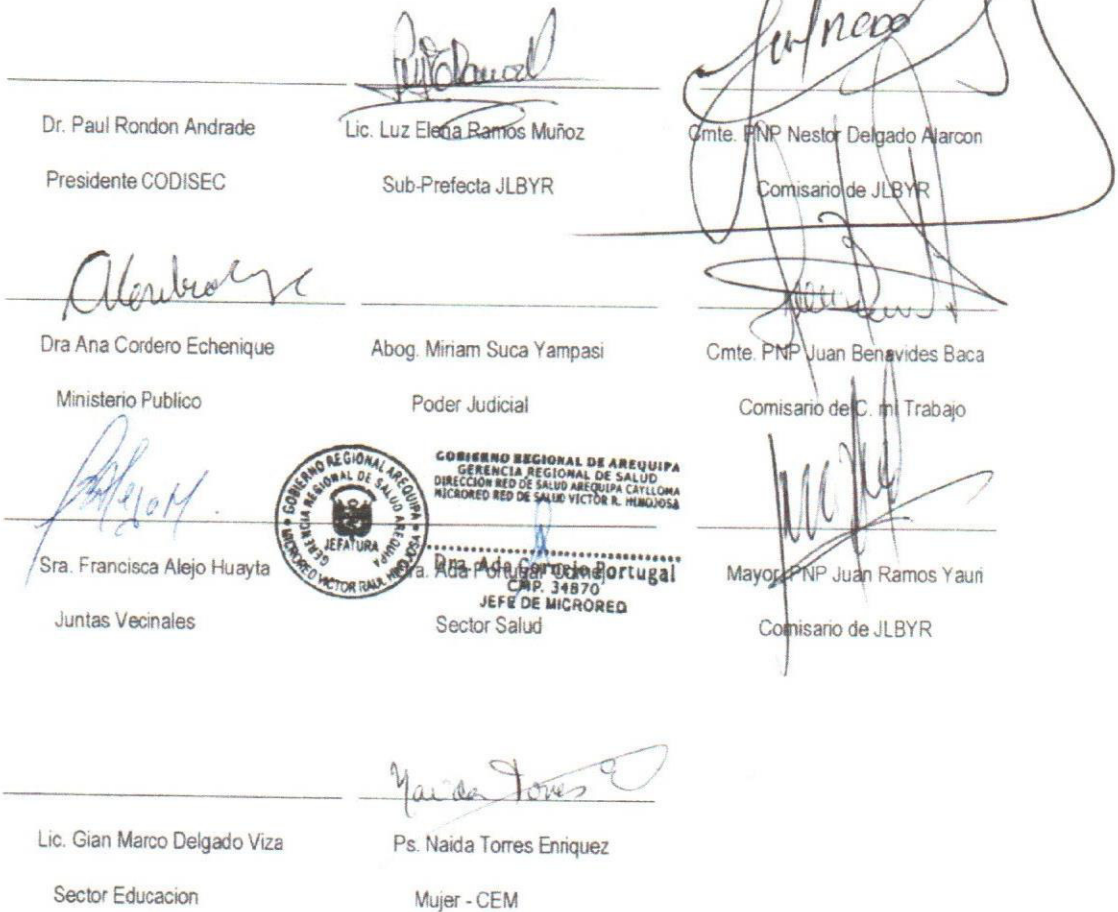 Dr. Paul Rondon Andrade
Presidente CODISEC
Lic. Luz Elena Ramos Muñoz
Sub-Prefecta JLBYR
Cmte. PNP Nestor Delgado Alarcon
Comisario de JLBYR
Dra Ana Cordero Echenique
Ministerio Publico
Abog. Miriam Suca Yampasi
Poder Judicial
Cmte. PNP Juan Benavides Baca
Comisario de C. mi Trabajo
Sra. Francisca Alejo Huayta
Juntas Vecinales
GOBIERNO REGIONAL AREQUIPA
GERENCIA REGIONAL DE SALUD AREQUIPA
JEFATURA
MICRORED VICTOR RAUL HINOJOSA
GOBIERNO REGIONAL DE AREQUIPA
GERENCIA REGIONAL DE SALUD
DIRECCIÓN RED DE SALUD AREQUIPA CAYLLOMA
MICRORED RED DE SALUD VICTOR R. HINOJOSA
Dra. Ada Cornejo Portugal
CMP. 34870
JEFE DE MICRORED
Dra. Ada Portugal Cornejo
Sector Salud
Mayor PNP Juan Ramos Yauri
Comisario de JLBYR
Lic. Gian Marco Delgado Viza
Sector Educacion
Naida Torres
Ps. Naida Torres Enriquez
Mujer - CEM